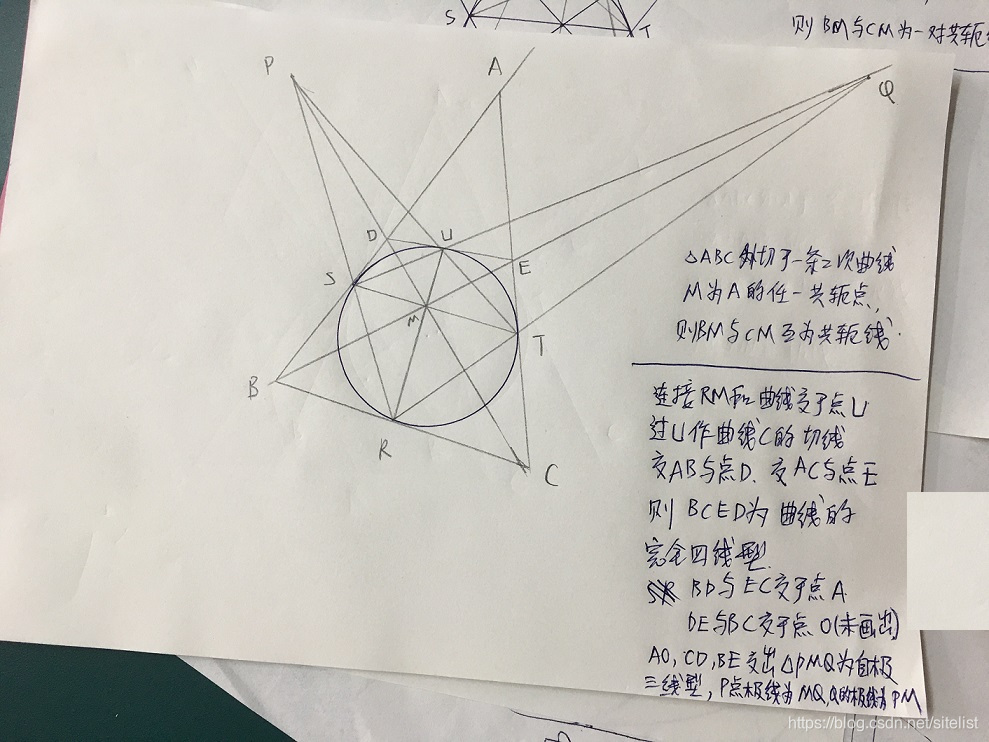 S
T
则BM与CM为一对共轭
P
A
Q
D
U
E
S
M
T
B
R
C
△ABC外切于一条二次曲线
M为A的任一共轭点,
则BM与CM互为共轭线.
连接RM和曲线交于点U
过U作曲线C的切线
交AB与点D、交AC与点E
则BCED为曲线的
完全四线型.
BD与EC交于点A
DE与BC交于点O(未画出)
AO,CD,BE交出△PMQ为自极
三线型,P点极线为MQ,Q的极线为PM
https://blog.csdn.net/sitelist